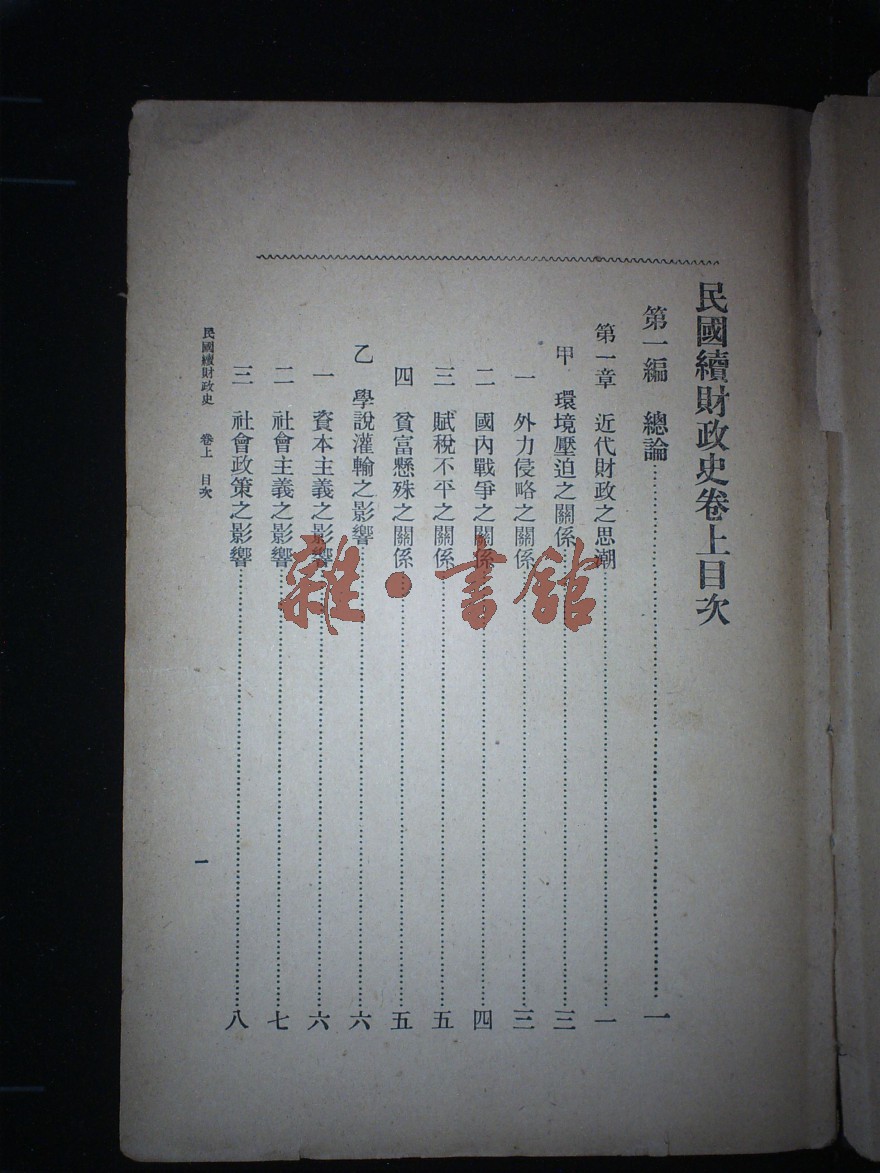 民國續財政史卷上目次
第一編 總論……一
第一章 近代財政之思潮……一
甲 環境壓迫之關係……三
一 外力侵略之關係……三
二 國內戰爭之關係……四
三 賦稅不平之關係……五
四 貧富懸殊之關係……五
乙 學說灌輸之影響……六
一 資本主義之影響……六
二 社會主義之影響……七
三 社會政策之影響……八
民國續財政史 卷上 目次
一
雜·書館